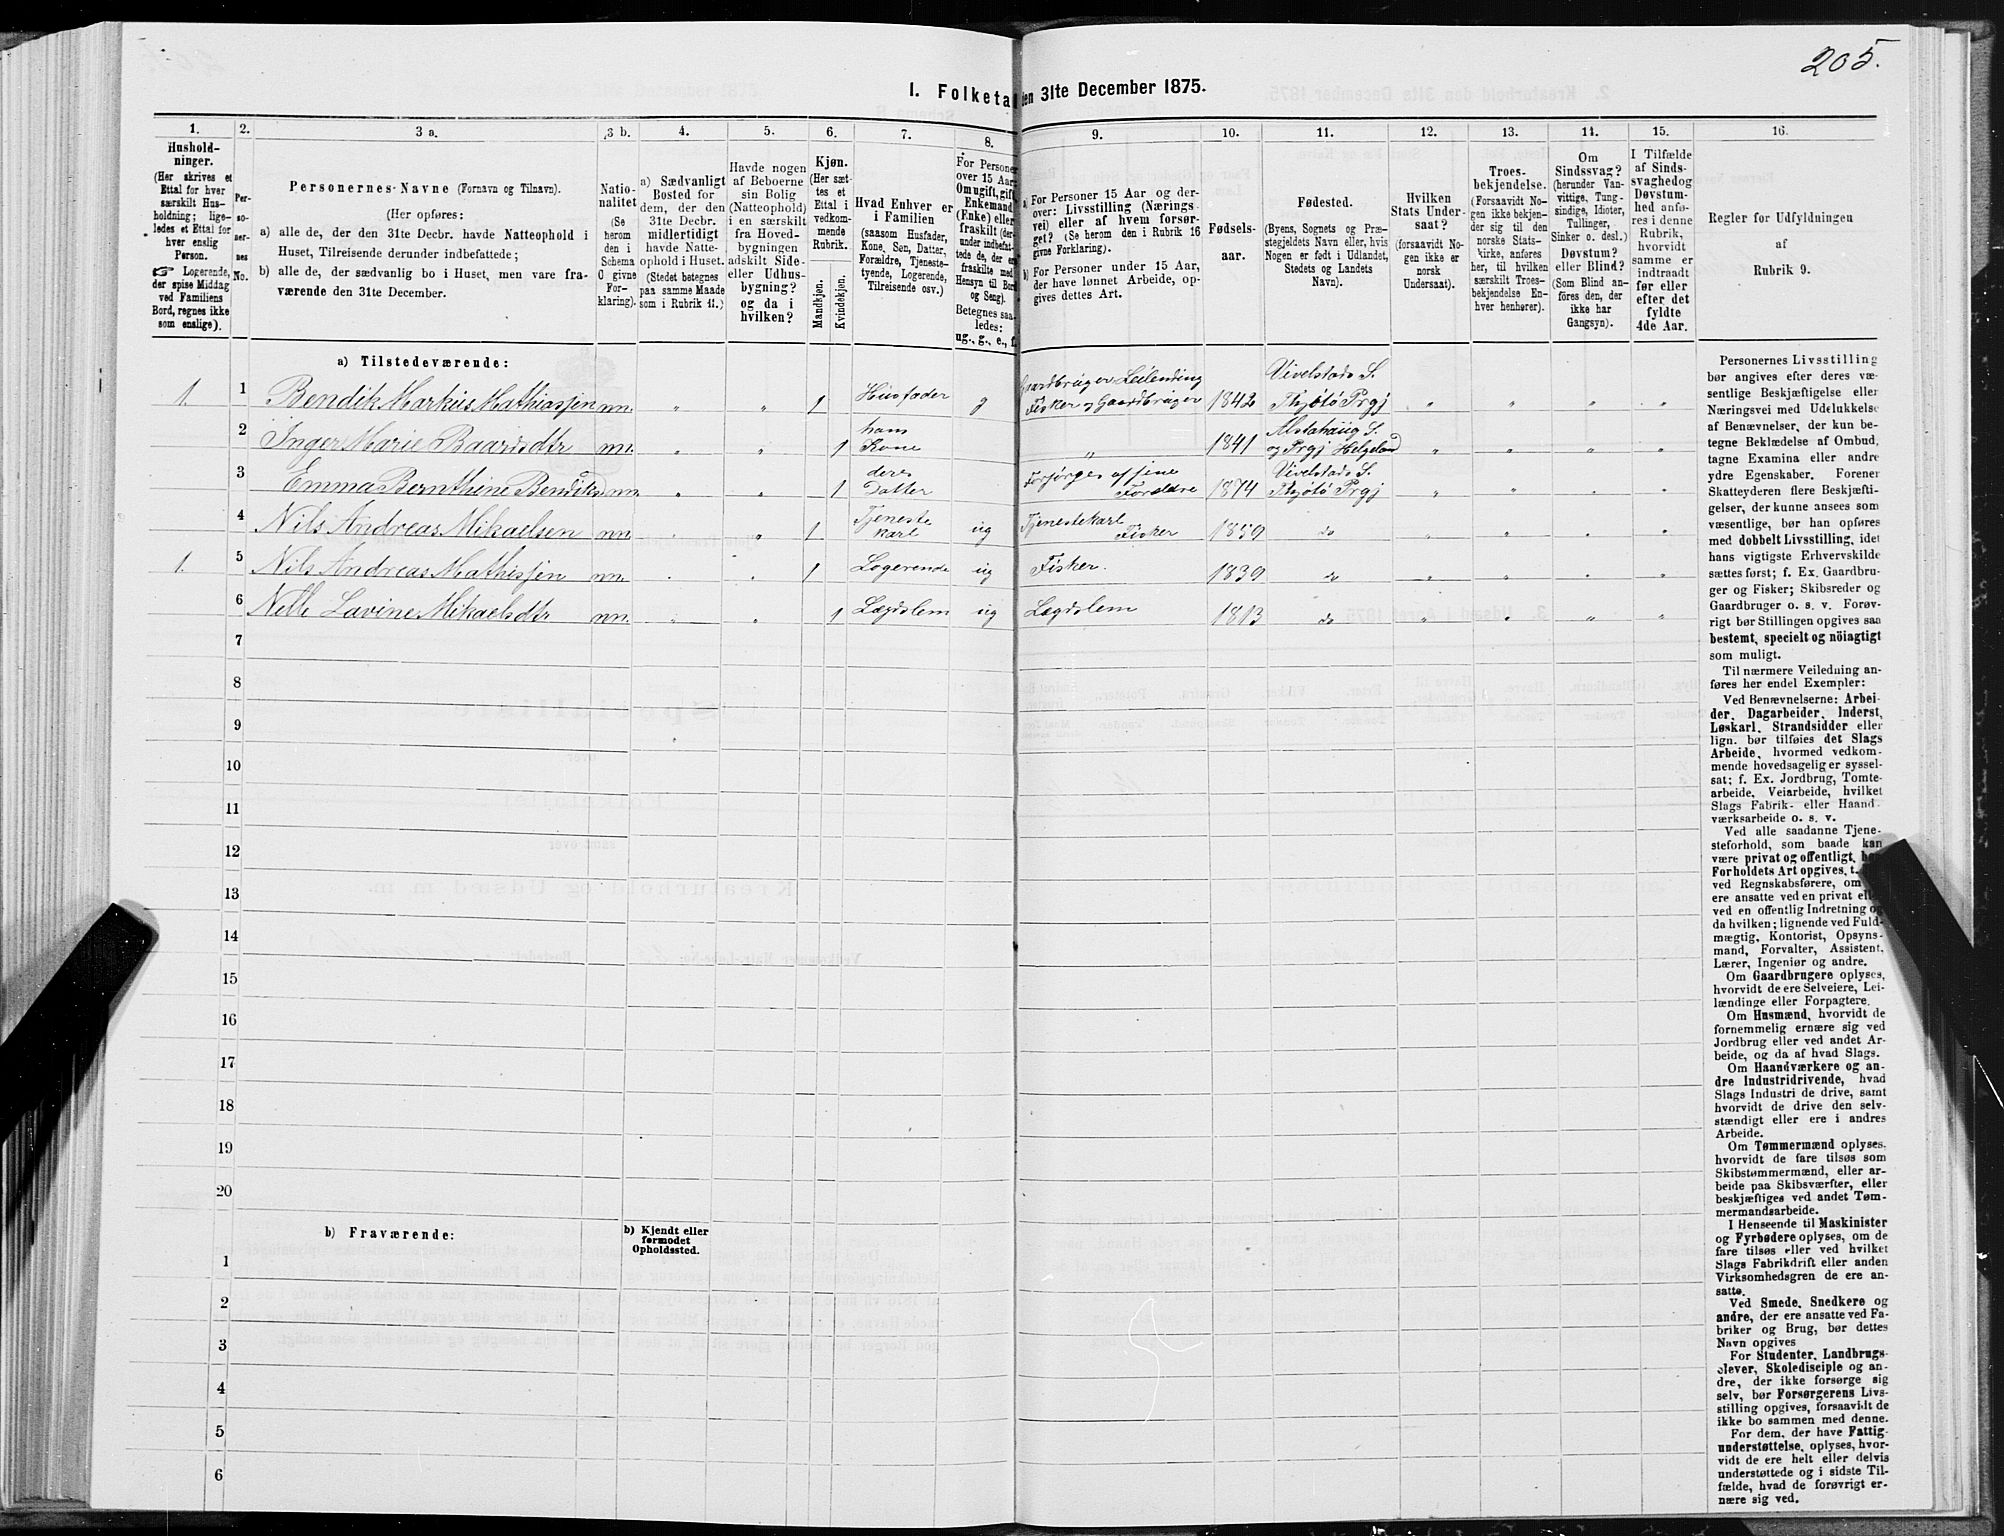 205.
I. Folketa den 31te December 1875.
1. 2. 3 a. 3 b. 4. 5. 6. 7. 8. 9. 10. 11. 12. 13. 14. 15. 16.
Hushold-
ninger.
(Her skrives et
Ettal for hver
særskilt Hus-
holdning; lige-
ledes et Ettal for
hver enslig
Person.
☞ Logerende,
der spise Middag
ved Familiens
Bord, regnes ikke
som enslige).
Per-
so-
ner-
nes
No.
Personernes Navne (Fornavn og Tilnavn).
(Her opføres:
a) alle de, der den 31te Decbr. havde Natteophold i
Huset, Tilreisende derunder indbefattede;
b) alle de, der sædvanlig bo i Huset, men vare fra-
værende den 31te December.
Natio-
nalitet
(Se
herom
den i
Schema
O givne
For-
klaring).
a) Sædvanligt
Bosted for
dem, der den
31te Decbr.
midlertidigt
havde Natte-
ophold i Huset.
(Stedet betegnes
paa samme Maade
som i Rubrik 11.)
Havde nogen
af Beboerne
sin Bolig
(Natteophold)
i en særskilt
fra Hoved-
bygningen
adskilt Side-
eller Udhus-
bygning?
og da i
hvilken?
Kjøn.
(Her sæt-
tes et
Ettal i
vedkom-
mende
Rubrik.
Mandkjøn.
Kvindekjøn.
Hvad Enhver er
i Familien
(saasom Husfader,
Kone, Søn, Datter,
Forældre, Tjeneste-
tyende, Logerende,
Tilreisende osv.)
For Personer
over 15 Aar
Om ugift, gift,
Enkemand
(Enke) eller
fraskilt (der-
under indbefat-
tede de, der ere
fraskilte med
Hensyn til Bord
og Seng).
Betegnes saa-
ledes:
ug., g., e., f.
a) For Personer 15 Aar og der-
over: Livsstilling (Nærings-
vei) eller af hvem forsør-
get? (Se herom den i Rubrik 16
givne Forklaring).
b) For Personer under 15 Aar,
der have lønnet Arbeide, op-
gives dettes Art.
Fødsels-
aar.
Fødested.
(Byens, Sognets og Præ-
stegjeldets Navn eller, hvis
Nogen er født i Udlandet,
Stedets og Landets
Navn).
Hvilken
Stats Under-
saat?
(forsaavidt No-
gen ikke er
norsk
Undersaat).
Troes-
bekjendelse.
(Forsaavidt No-
gen ikke bekjen-
der sig til den
norske Stats-
kirke, anføres
her, til hvilken
særskilt Troes-
bekjendelse En-
hver henhører).
Om
Sindssvag?
(herunder Van-
vittige, Tung-
sindige, Idioter,
Tullinger,
Sinker o. desl.)
Døvstum?
eller Blind?
(Som Blind an-
føres den, der
ikke har
Gangsyn).
I Tilfælde
af Sinds-
svaghed og
Døvstum-
hed anfø-
res i denne
Rubrik,
hvorvidt
samme er
indtraadt
før eller
efter det
fyldte
4de Aar.
Regler for Udfyldningen
af
Rubrik 9.
a) Tilstedeværende:
1. 1 Bendik Markus Mathiassen nn. " " 1 Husfader g Gaardbruger Leilending Fisker og Gaardbruger 1842 Vivelstads S. Thjøtø Prgj " " " "
2 Inger Marie Baardsdtr nn. " " 1 hans Kone " 1841 Alstahaug S. og Prgj Helgeland " " " "
3 Emma Bernthine Bendiksd nn. " " 1 deres Datter Forsørges af sine Forældre 1874 Vivelstads S. Thjøtø Prgj " " " "
4 Nils Andreas Mikaelsen nn. " " 1 Tjeneste karl ug Tjenestekarl Fisker 1859 do " " " "
1. 5 Nils Andreas Mathissen nn. " " 1 Logerende ug Fisker. 1839 do " " " "
6 Nelle Lavine Mikaelsdtr nn. " " 1 Lægdslem ug Lægdslem 1813 do " " " "
7
8
9
10
11
12
13
14
15
16
17
18
19
20
b) Fraværende:
b) Kjendt eller
formodet
Opholdssted.
1
2
3
4
5
6
Personernes Livsstilling
bør angives efter deres væ-
sentlige Beskjæftigelse eller
Næringsvei med Udelukkelse
af Benævnelser, der kun be-
tegne Beklædelse af Ombud,
tagne Examina eller andre
ydre Egenskaber. Forener
Skatteyderen flere Beskjæfti-
gelser, der kunne ansees som
væsentlige, bør han opføres
med dobbelt Livsstilling, idet
hans vigtigste Erhvervskilde
sættes først; f. Ex. Gaardbru-
ger og Fisker; Skibsreder og
Gaardbruger o. s. v. Forøv-
rigt bør Stillingen opgives saa
bestemt, specielt og nöiagtigt
som muligt.
Til nærmere Veiledning an-
føres her endel Exempler:
Ved Benævnelserne: Arbei-
der, Dagarbeider, Inderst,
Løskarl, Strandsidder eller
lign. bør tilføies det Slags
Arbeide, hvormed vedkom-
mende hovedsagelig er syssel-
sat; f. Ex. Jordbrug, Tomte-
arbeide, Veiarbeide, hvilket
Slags Fabrik- eller Haand-
værksarbeide o. s. v.
Ved alle saadanne Tjene-
steforhold, som baade kan
være privat og offentligt, bør
Forholdets Art opgives, t.
ved Regnskabsførere, om
ere ansatte ved en privat ell
ved en offentlig Indretning og
da hvilken; lignende ved Fuld-
mægtig, Kontorist, Opsyns-
mand, Forvalter, Assistent,
Lærer, Ingeniør og andre.
Om Gaardbrugere oplyses,
hvorvidt de ere Selveiere, Lei-
lændinge eller Forpagtere.
Om Husmænd, hvorvidt de
fornemmelig ernære sig ved
Jordbrug eller ved andet Ar-
beide, og da af hvad Slags.
Om Haandværkere og an-
dre Industridrivende, hvad
Slags Industri de drive, samt
hvorvidt de drive den selv-
stændigt eller ere i andres
Arbeide.
Om Tømmermænd oplyses,
hvorvidt de fare tilsøs som
Skibstømmermænd, eller ar-
beide paa Skibsværfter, eller
beskjæftiges ved andet Tøm-
mermandsarbeide.
I Henseende til Maskinister
og Fyrbødere oplyses, om de
fare tilsøs eller ved hvilket
Slags Fabrikdrift eller anden
Virksomhedsgren de ere an-
satte.
Ved Smede, Snedkere og
andre, der ere ansatte ved Fa-
briker og Brug, bør dettes
Navn opgives
For Studenter, Landbrugs-
elever, Skoledisciple og an-
dre, der ikke forsørge sig
selv, bør Forsørgerens Livs-
stilling opgives, forsaavidt de
ikke bo sammen med denne.
For dem, der have Fattig-
understøttelse, oplyses, hvor-
vidt de ere helt eller delvis
understøttede og i sidste Til-
fælde, hvad de forøvrigt er-
nære sig ved.